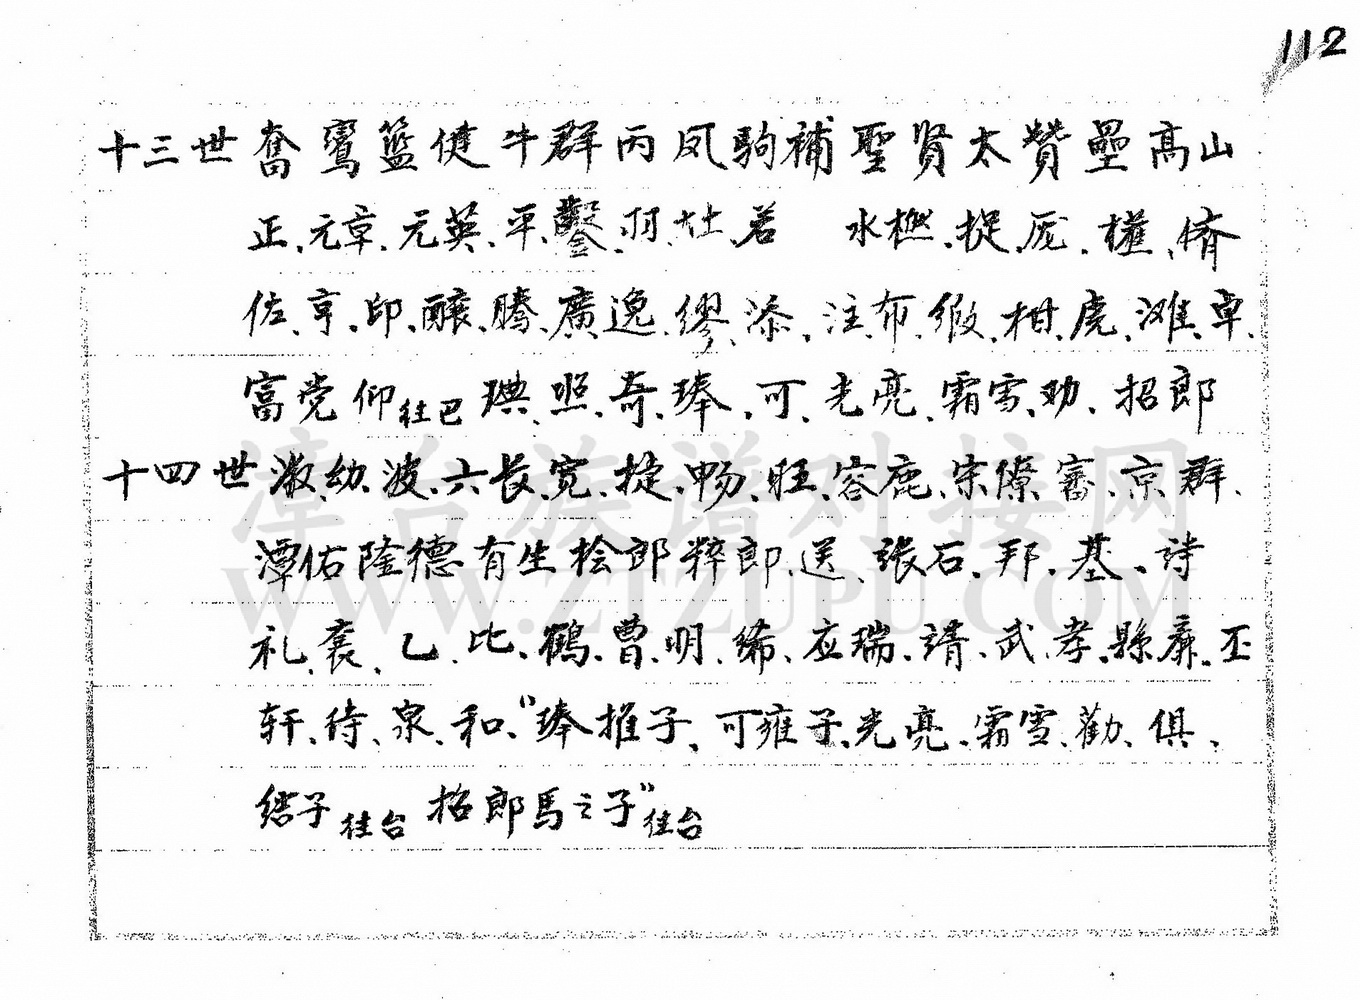 112
十三世 奮 鸞 籃 健 牛 群 丙 凤 駒 補 聖 賢 太 贊 壘 高 山
正、元章、元英、平、鑿、羽、灶、若 水 樵、捉、厐、槿、儕
佐、亨、印、釀、騰、廣、逸、缪、添、注、布、缎、柑、虎、滩、卓、
富 党 仰 往巴 琠、照、奇、琫、可、光亮、霜雪、劝、招郎
十四世 溆、幼、波、六、長、宽、捷、畅、旺、容、鹿、宋、際、審、京、群、
潭 佑 隆 德 有 生 桧 郎 粹 郎、送、張 石、邦、基、詩
礼、袠、乙、比、鶴、曹、明、締、应、瑞、請、武、孝、縣、廉、丕
轩、待、泉、和、"琫推子、可雍子、光亮、霜雪、勸、俱、
结子 往台 招郎馬之子" 往台
漳台族谱对接网
WWW.ZTZUPU.COM